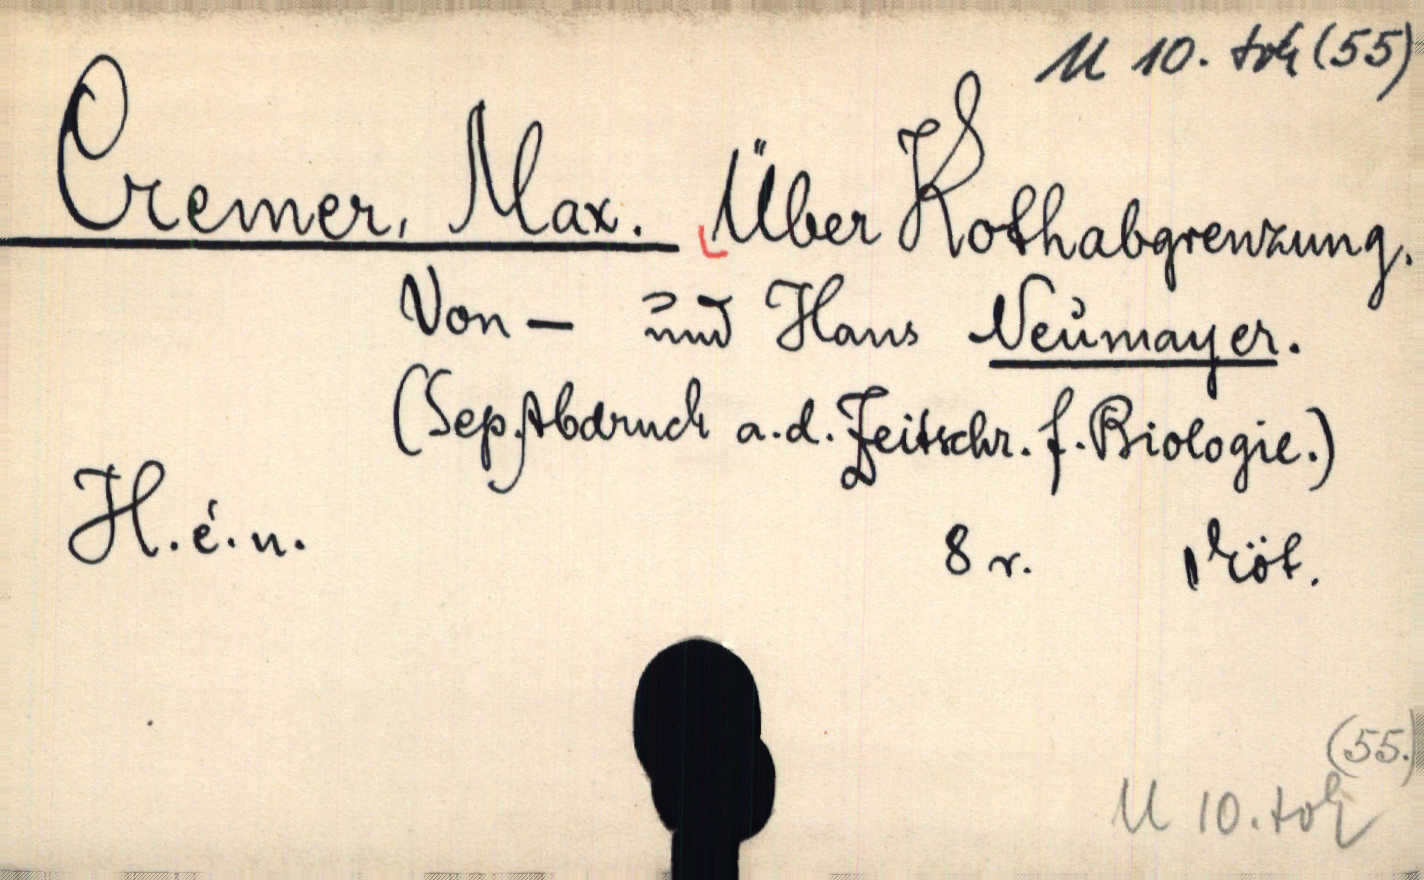 U 10. tok (55)
Cremer, Max. Über Kothabgrenzung.
Von — und Hans Neumayer.
(Sep. Abdruck a. d. Zeitschr. f. Biologie.)
H. é. n. 8 r. Köt.
(55.)
U 10. tok